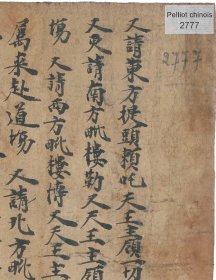 Pelliot chinois
2777
2777
又請東方提頭賴吒天王主領一切
又更請南方毗樓勒叉天王主領
場 又請西方毗樓博叉天王主
駕来赴道場 又請北方毗